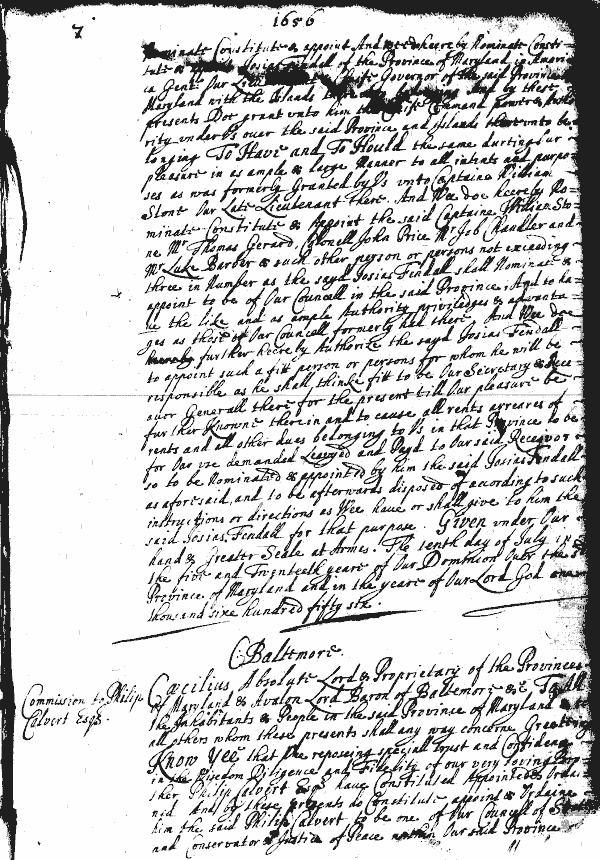 7
1656
Nominate Constitute & appoint And wee doe heereby Nominate Consti-
tute & appoint Josias Fendall of the Province of Maryland in Ameri
ca Gent. Our Governor of the said Province
Maryland with the Islands And by these
presents Doe grant vnto him the Comand power & Autho
rity under Vs over the said Province and Islands therevnto be
longing To Have and To Hould the same during Our
pleasure in as ample & large Manner to all intents and purpo
ses as was formerly Granted by Vs vnto Captaine William
Stone Our Late Lieutenant there. And Wee doe heereby No-
minate Constitute & Appoint the said Captaine William Sto-
ne Mr Thomas Gerard, Colonell John Price Mr Job Chandler and
Mr Luke Barber & such other person or persons not exceeding
three in Number as the sayd Josias Fendall shall Nominate &
appoint to be of Our Councell in the said Province And to ha-
ue the like and as ample Authority priviledges & advanta
ges as those of Our Councell formerly had there. And Wee doe
further heereby Authorize the sayd Josias Fendall
to appoint such a fitt person or persons for whom he will be
responsible as he shall thinke fitt to be Our Secretary & Rece
auor Generall there for the present till Our pleasure be
further Knowne therein and to cause all rents arreares of
rents and all other dues belonging to Vs in that Province to be
for Our vse demanded Leavyed and Payd to Our said Receavor
so to be Nominated & appointed by him the said Josias Fendall
as aforesaid, and to be afterwards disposed of according to such
instructions or directions as Wee haue or shall give to him the
said Josias Fendall for that purpose. Given vnder Our
hand & Greater Seale at Armes. The tenth day of July in
the five and Twentieth yeare of Our Dominion Over the
Province of Maryland and in the yeare of Our Lord God one
thousand sixe hundred fifty six.
C: Baltemore.
Commission to Philip
Calvert Esqr.
Cæcilius Absolute Lord & Proprietary of the Provinces
of Maryland & Avalon Lord Baron of Baltemore &c. To All
the Inhabitants & People in the said Province of Maryland &
all others whom these presents shall any way concerne Greeting
Know Yee that We reposing speciall trust and Confidence
in the Wisedom Diligence and Fidelity of our very loving Bro
ther Philip Calvert Esqr have Constituted Appointed & Ordai
ned And by these presents do Constitute appoint & Ordaine
him the said Philip Calvert to be one of Our Councell of State
and Conservator & Justice of Peace within Our said Province